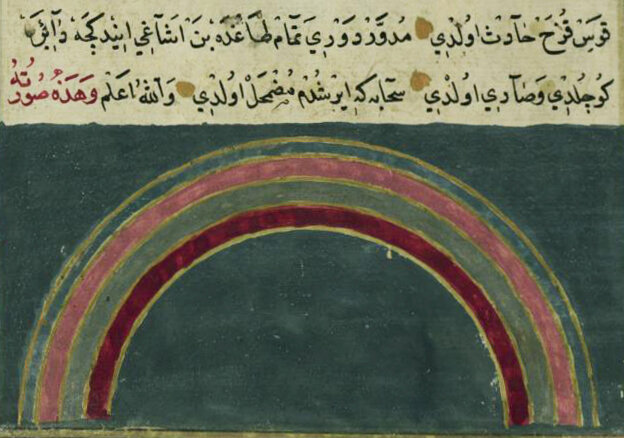 قوس قزح حادث اولدي مدوّر دوري تمام طاغده بن اشاغي ايندكچه دآئره
كوچلدي وصاري اولدي سحابه كه ايرشدم مضمحل اولدي والله اعلم وهذه صورته